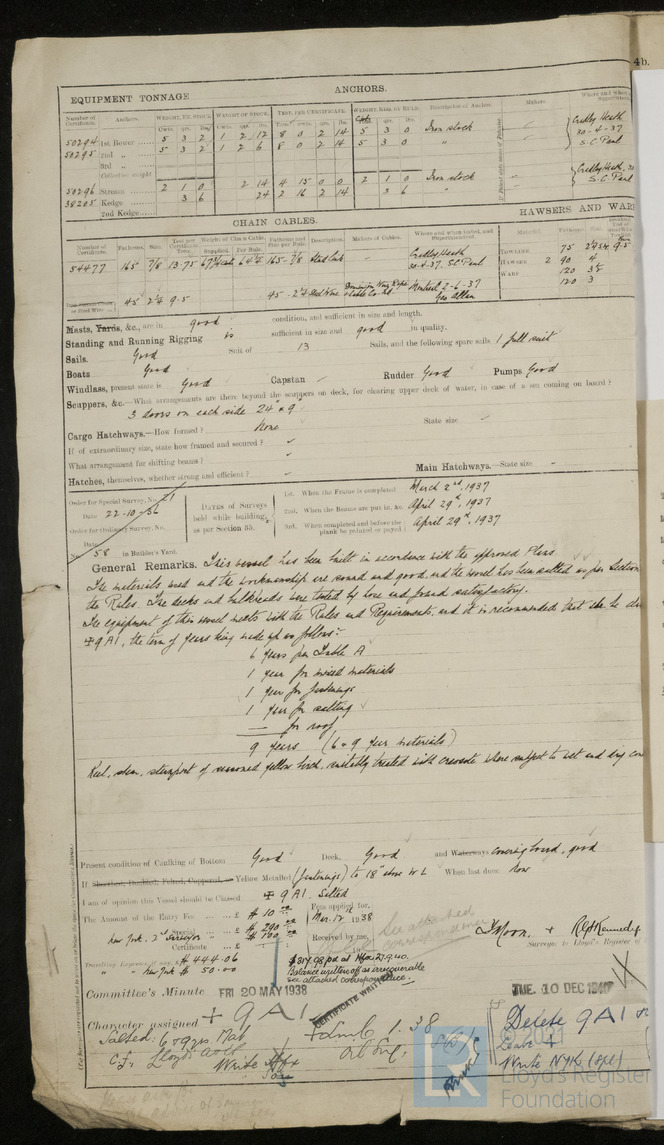 4b.
EQUIPMENT TONNAGE
ANCHORS.
Number of Certificate. Anchors. WEIGHT, EX. STOCK. WEIGHT OF STOCK. TEST, PER CERTIFICATE. WEIGHT REQ. BY RULE. Description of Anchor. Makers.
Cwts. qrs. lbs. Cwts. qrs. lbs. Tons. cwts. qrs. lbs. Cwts. qrs. lbs.
50294 1st Bower 5 3 2 1 2 12 8 0 2 14 5 3 0 Iron stock Cradley Heath 30-4-37 S.C. Paul
50295 2nd „ 5 3 2 1 2 6 8 0 2 14 5 3 0 „
3rd „
Collective weight
50296 Stream 2 1 0 2 14 4 15 0 0 2 1 0 Iron stock Cradley Heath, 30 S.C. Paul
38205 Kedge 3 6 24 2 16 2 14 3 6
2nd Kedge
CHAIN CABLES.
HAWSERS AND WARP
Number of Certificate. Fathoms. Size. Test per Certificate. Tons. Weight of Chain Cable. Supplied. Per Rule. Fathoms and Size per Rule. Description. Makers of Cables. Where and when tested, and Superintendent. Material. Fathoms.
54477 165 7/8 13.75 165-7/8 Stud Link Cradley Heath 30-4-37. S.C. Paul
or Steel Wire 45 2¾ 9.5 45-2¾ Steel Wire Dominion Wire Rope & Cable Co. Ltd Montreal 2-6-37 Geo Allan
TOWLINE 75 9.5
HAWSER 2 90 4
WARP 120 3½
120 3
Masts, Yards, &c., are in good condition, and sufficient in size and length.
Standing and Running Rigging is sufficient in size and good in quality.
Sails. Good Suit of 13 Sails, and the following spare sails 1 full suit
Boats Good
Windlass, present state is Good Capstan – Rudder Good Pumps Good
Scuppers, &c.—What arrangements are there beyond the scuppers on deck, for clearing upper deck of water, in case of a sea coming on board?
3 doors on each side 24" x 9"
Cargo Hatchways.—How formed? None State size
If of extraordinary size, state how framed and secured?
What arrangement for shifting beams?
Hatches, themselves, whether strong and efficient? Main Hatchways.—State size
Order for Special Survey, No. 21
Date 22-10-36
Order for Ordinary Survey, No.
Date
No. 58 in Builder's Yard.
DATES of Surveys held while building, as per Section 35.
1st. When the Frame is completed March 2nd, 1937
2nd. When the Beams are put in, &c. April 29th, 1937
3rd. When completed and before the plank be painted or payed April 29th, 1937
General Remarks. This vessel has been built in accordance with the approved Plans
The materials used and the workmanship are sound and good, and the vessel has been salted as per Section
the Rules. The decks and bulkheads were tested by hose and found satisfactory.
The equipment of this vessel meets with the Rules and Requirements, and it is recommended that she be
✠ 9 A1, the term of years being made up as follows:-
6 years per Table A
1 year for mixed materials
1 year for fastenings
1 year for salting
— for roof
9 years (6 & 9 year materials)
Keel, stem, sternpost of seasoned yellow birch, suitably treated with creosote where subject to wet and dry
Present condition of Caulking of Bottom Good Deck, Good and Waterways covering board, good
If Sheathed, Doubled, Felted, Coppered, Yellow Metalled (fastenings) to 18" above WL When last done Now
I am of opinion this Vessel should be Classed ✠ 9 A1. Salted
The Amount of the Entry Fee £ $ 10.00 Fees applied for,
Special £ $ 290.00 Mar. 12 1938
New York. 2nd Surveyor „ $ 100.00 Received by me,
Certificate £
Travelling Expenses if any, £ $ 444.06
„ „ New York $ 50.00
Balance written off as irrecoverable
see attached correspondence.
See attached correspondence
J Moon. + R.G. Kennedy
Surveyor to Lloyd's Register of
Committee's Minute FRI 20 MAY 1938
TUE. 10 DEC 1940
Character assigned + 9 A1
CERTIFICATE WRITTEN
Salted. 6 & 9 yrs Mat
+ LMC 1.38
Oil Eng.
C.F. Lloyd's A&CP
Delete 9 A1
Leave +
Write NYK (Spl)
© 2021
Lloyd's Register
Foundation